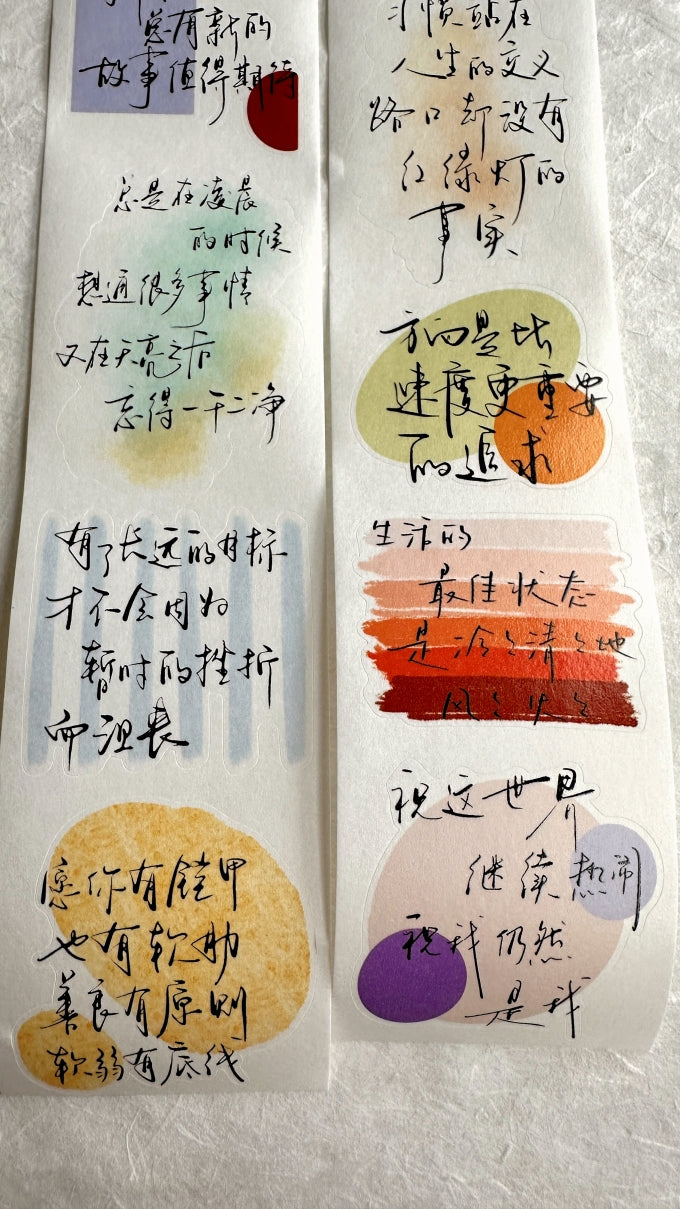 总有新的
故事值得期待
总是在凌晨
的时候
想通很多事情
又在天亮之后
忘得一干二净
有了长远的目标
才不会因为
暂时的挫折
而沮丧
愿你有铠甲
也有软肋
善良有原则
软弱有底线
习惯站在
人生的交叉
路口却没有
红绿灯的
事实
方向是比
速度更重要
的追求
生活的
最佳状态
是冷冷清清地
风风火火
祝这世界
继续热闹
祝我仍然
是我